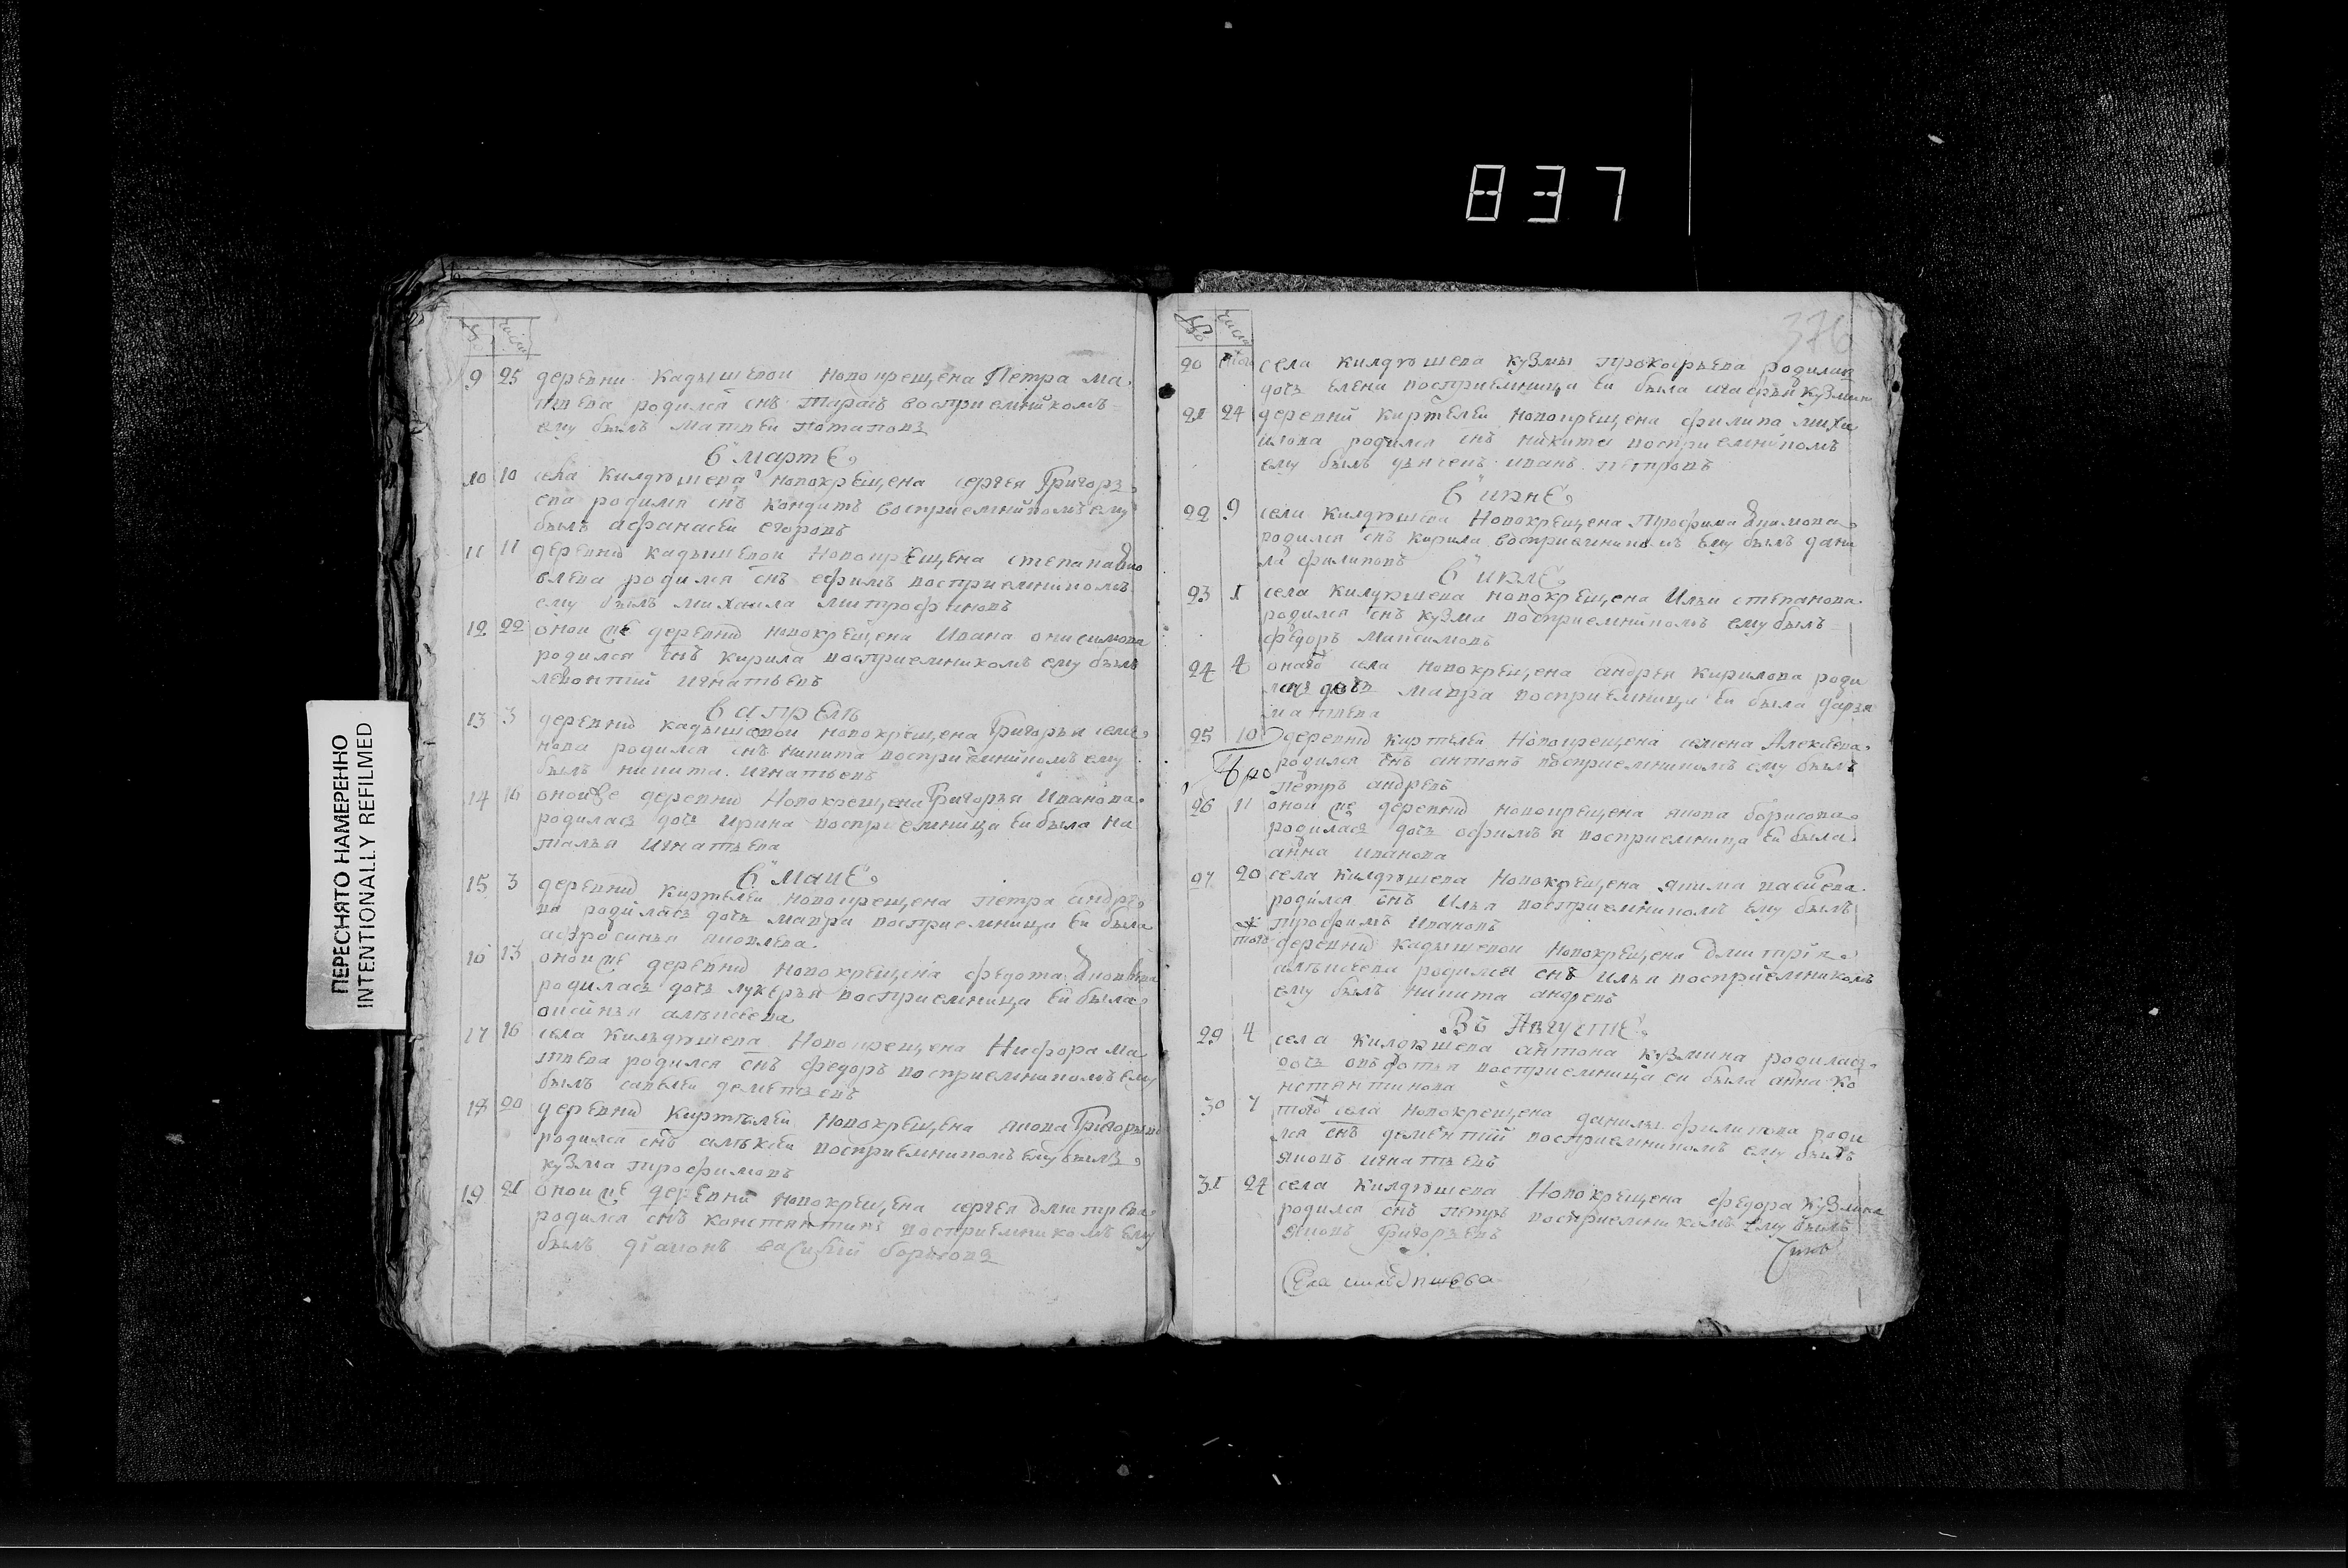 837
ПЕРЕСНЯТО НАМЕРЕННО
INTENTIONALLY REFILMED
9 25 деревни Кадышевои новокрещена Петра Ма
твева родился снъ Тарасъ восприемникомъ
ему былъ Матвеи Потаповъ
в мартЕ
10 10 села Килдюшева новокрещена сергея Григорь
ева родился снъ Кондитъ восприемникомъ ему
былъ афанасеи егоровъ
11 11 деревни кадышевои новокрещена степана Яко
влева родился снъ ефимъ восприемникомъ
ему былъ михаила митрофановъ
12 22 онои же деревни новокрещена Ивана онисимова
родился снъ кирила восприемникомъ ему былъ
левонтии игнатьевъ
в апрелъ
13 3 деревни кадышевои новокрещена Григорья семе
нова родился снъ никита восприемникомъ ему
былъ никита игнатьевъ
14 16 онои же деревни Новокрещена Григорья Иванова
родилась дочь ирина восприемница Еи была на
талья игнатьева
в маиЕ
15 3 деревни Киртели новокрещена петра андре
ва родилась дочь мавра восприемница Еи была
афросинья яковлева
16 13 онои же деревни новокрещена федота Яковлева
родилась дочь лукерья восприемница Еи была
аксинья алѣксеева
17 16 села Килдюшева Новокрещена Никифора Ма
твева родился снъ федоръ восприемникомъ ему
былъ савелеи дементьевъ
18 20 деревни Киртѣлеи Новокрещена якова Григорьева
родился снъ алѣксеи восприемникомъ ему былъ
кузма трофимовъ
19 21 онои же деревни новокрещена сергея дмитрева
родился снъ константинъ восприемникомъ ему
былъ дiаконъ василии борисовъ
376
20 того села килдюшева кузмы прокофьева родилас
дочь елена восприемница Еи была кузмин
21 24 деревни киртелеи новокрещена филипа миха
илова родился снъ никита восприемникомъ
ему былъ иванъ петровъ
в июнЕ
22 9 села килдюшева Новокрещена трофима Якимова
родился снъ кирила восприемникомъ Ему былъ дани
ла филиповъ
в июлЕ
23 1 села килдюшева новокрещена Ильи степанова
родился снъ кузма восприемникомъ ему былъ
федоръ максимовъ
24 4 онаго села новокрещена андрея кирилова роди
лась дочь мавра восприемница Еи была дарья
матвева
25 10 деревни киртели Новокрещена семена Алексеева
родился снъ антонъ восприемникомъ ему былъ
петръ андревъ
26 11 онои же деревни новокрещена якова борисова
родилась дочь ефимья восприемница Еи была
анна иванова
27 20 села килдюшева Новокрещена якима васильева
родился снъ Илья восприемникомъ Ему былъ
трофимъ Ивановъ
того деревни кадышевои новокрещена Дмитрiя
алѣксеева родился снъ илья восприемникомъ
ему былъ никита андревъ
Въ АвгустЕ
29 4 села килдюшева антона кузмина родилась
дочь восприемница еи была анна ко
нстянтинова
30 7 того села новокрещена данилы филипова роди
лся снъ дементии восприемникомъ ему былъ
яковъ игнатьевъ
31 24 села килдюшева Новокрещена федора кузмина
родился снъ петръ восприемникомъ ему былъ
яковъ Григорьевъ
Села